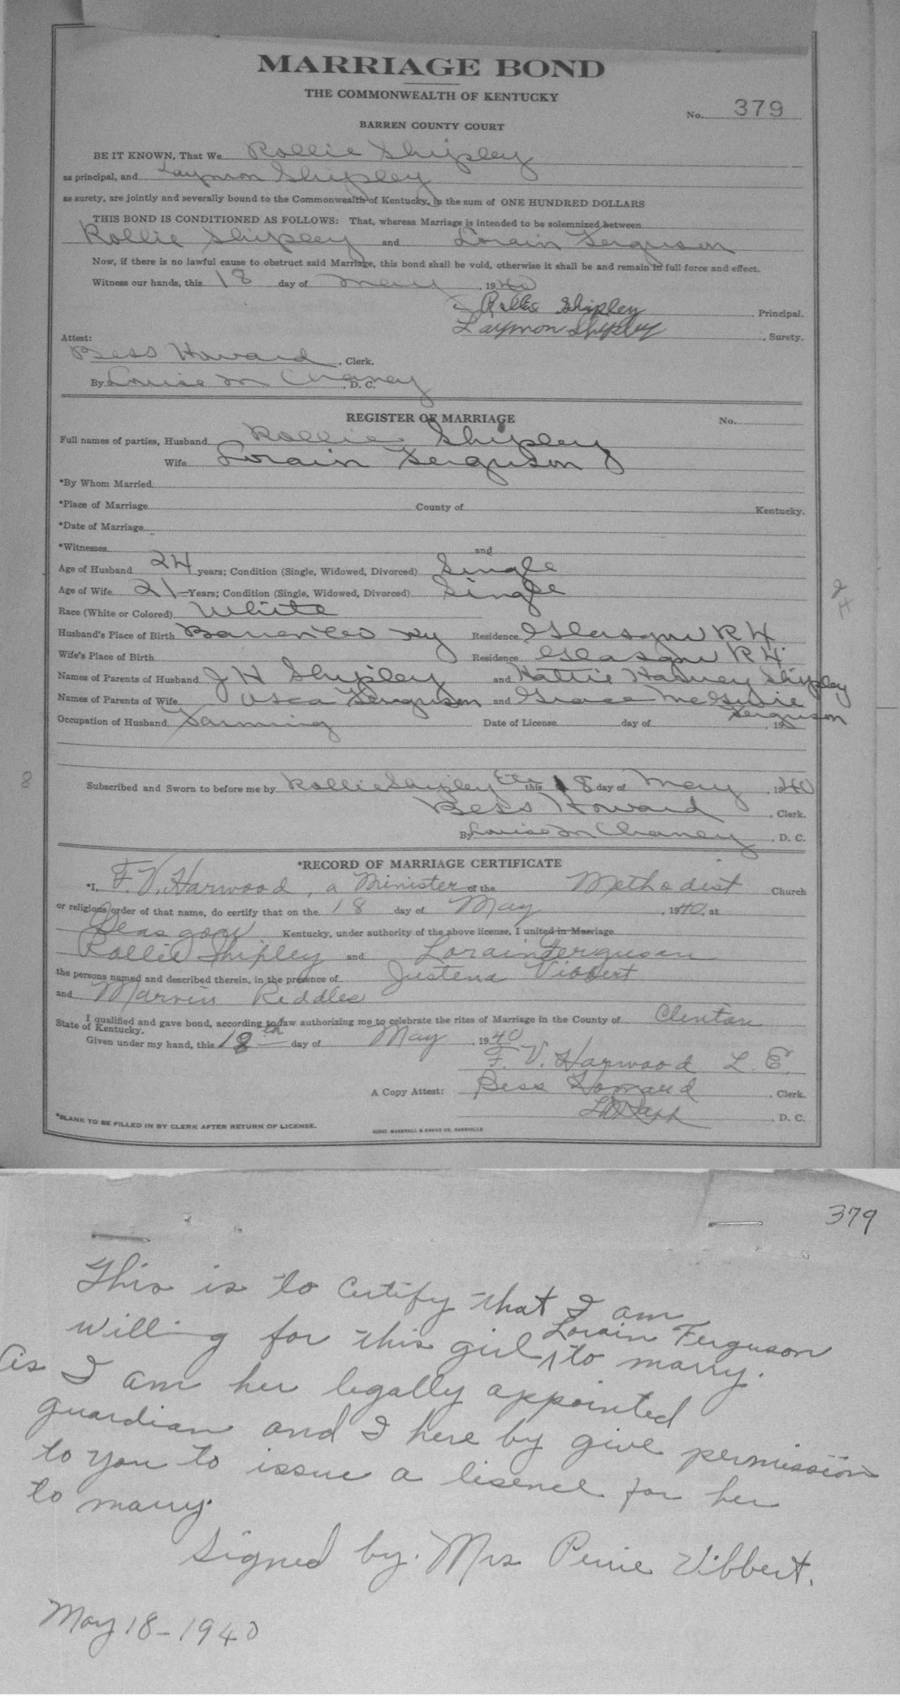 MARRIAGE BOND
THE COMMONWEALTH OF KENTUCKY
No. 379
BARREN COUNTY COURT
BE IT KNOWN, That We Rollie Shipley
as principal, and Laymon Shipley
as surety, are jointly and severally bound to the Commonwealth of Kentucky, in the sum of ONE HUNDRED DOLLARS
THIS BOND IS CONDITIONED AS FOLLOWS: That, whereas Marriage is intended to be solemnized between
Rollie Shipley and Lorain Ferguson
Now, if there is no lawful cause to obstruct said Marriage, this bond shall be void, otherwise it shall be and remain in full force and effect.
Witness our hands, this 18 day of May, 1940
Rollie Shipley, Principal.
Laymon Shipley, Surety.
Attest:
Bess Howard, Clerk.
By Louise M Chaney, D. C.
REGISTER OF MARRIAGE No.
Full names of parties, Husband Rollie Shipley
Wife Lorain Ferguson
*By Whom Married
*Place of Marriage County of Kentucky.
*Date of Marriage
*Witnesses and
Age of Husband 24 years; Condition (Single, Widowed, Divorced) Single
Age of Wife 21 Years; Condition (Single, Widowed, Divorced) Single
Race (White or Colored) White
Husband's Place of Birth Barren Co Ky Residence Glasgow R 4
Wife's Place of Birth Residence Glasgow R 4
Names of Parents of Husband J H Shipley and Hattie Harvey Shipley
Names of Parents of Wife Osca Ferguson and Grace McGuire Ferguson
Occupation of Husband Farming Date of License day of , 19
Subscribed and Sworn to before me by Rollie Shipley Etc this 18 day of May, 1940
Bess Howard, Clerk.
By Louise M Chaney, D. C.
*RECORD OF MARRIAGE CERTIFICATE
*I, F. V. Harwood, a Minister of the Methodist Church
or religious order of that name, do certify that on the 18 day of May, 1940, at
Glasgow Kentucky, under authority of the above license, I united in Marriage
Rollie Shipley and Lorain Ferguson
the persons named and described therein, in the presence of Justena Vibbert
and Marvin Riddles
I qualified and gave bond, according to law authorizing me to celebrate the rites of Marriage in the County of Clinton
State of Kentucky.
Given under my hand, this 18th day of May, 1940
F. V. Harwood L. E.
A Copy Attest: Bess Howard, Clerk.
D. C.
*BLANK TO BE FILLED IN BY CLERK AFTER RETURN OF LICENSE.
379
This is to certify that I am
willing for this girl Lorain Ferguson to marry.
As I am her legally appointed
guardian and I here by give permission
to you to issue a lisence for her
to marry.
Signed by. Mrs Perie Vibbert.
May 18-1940